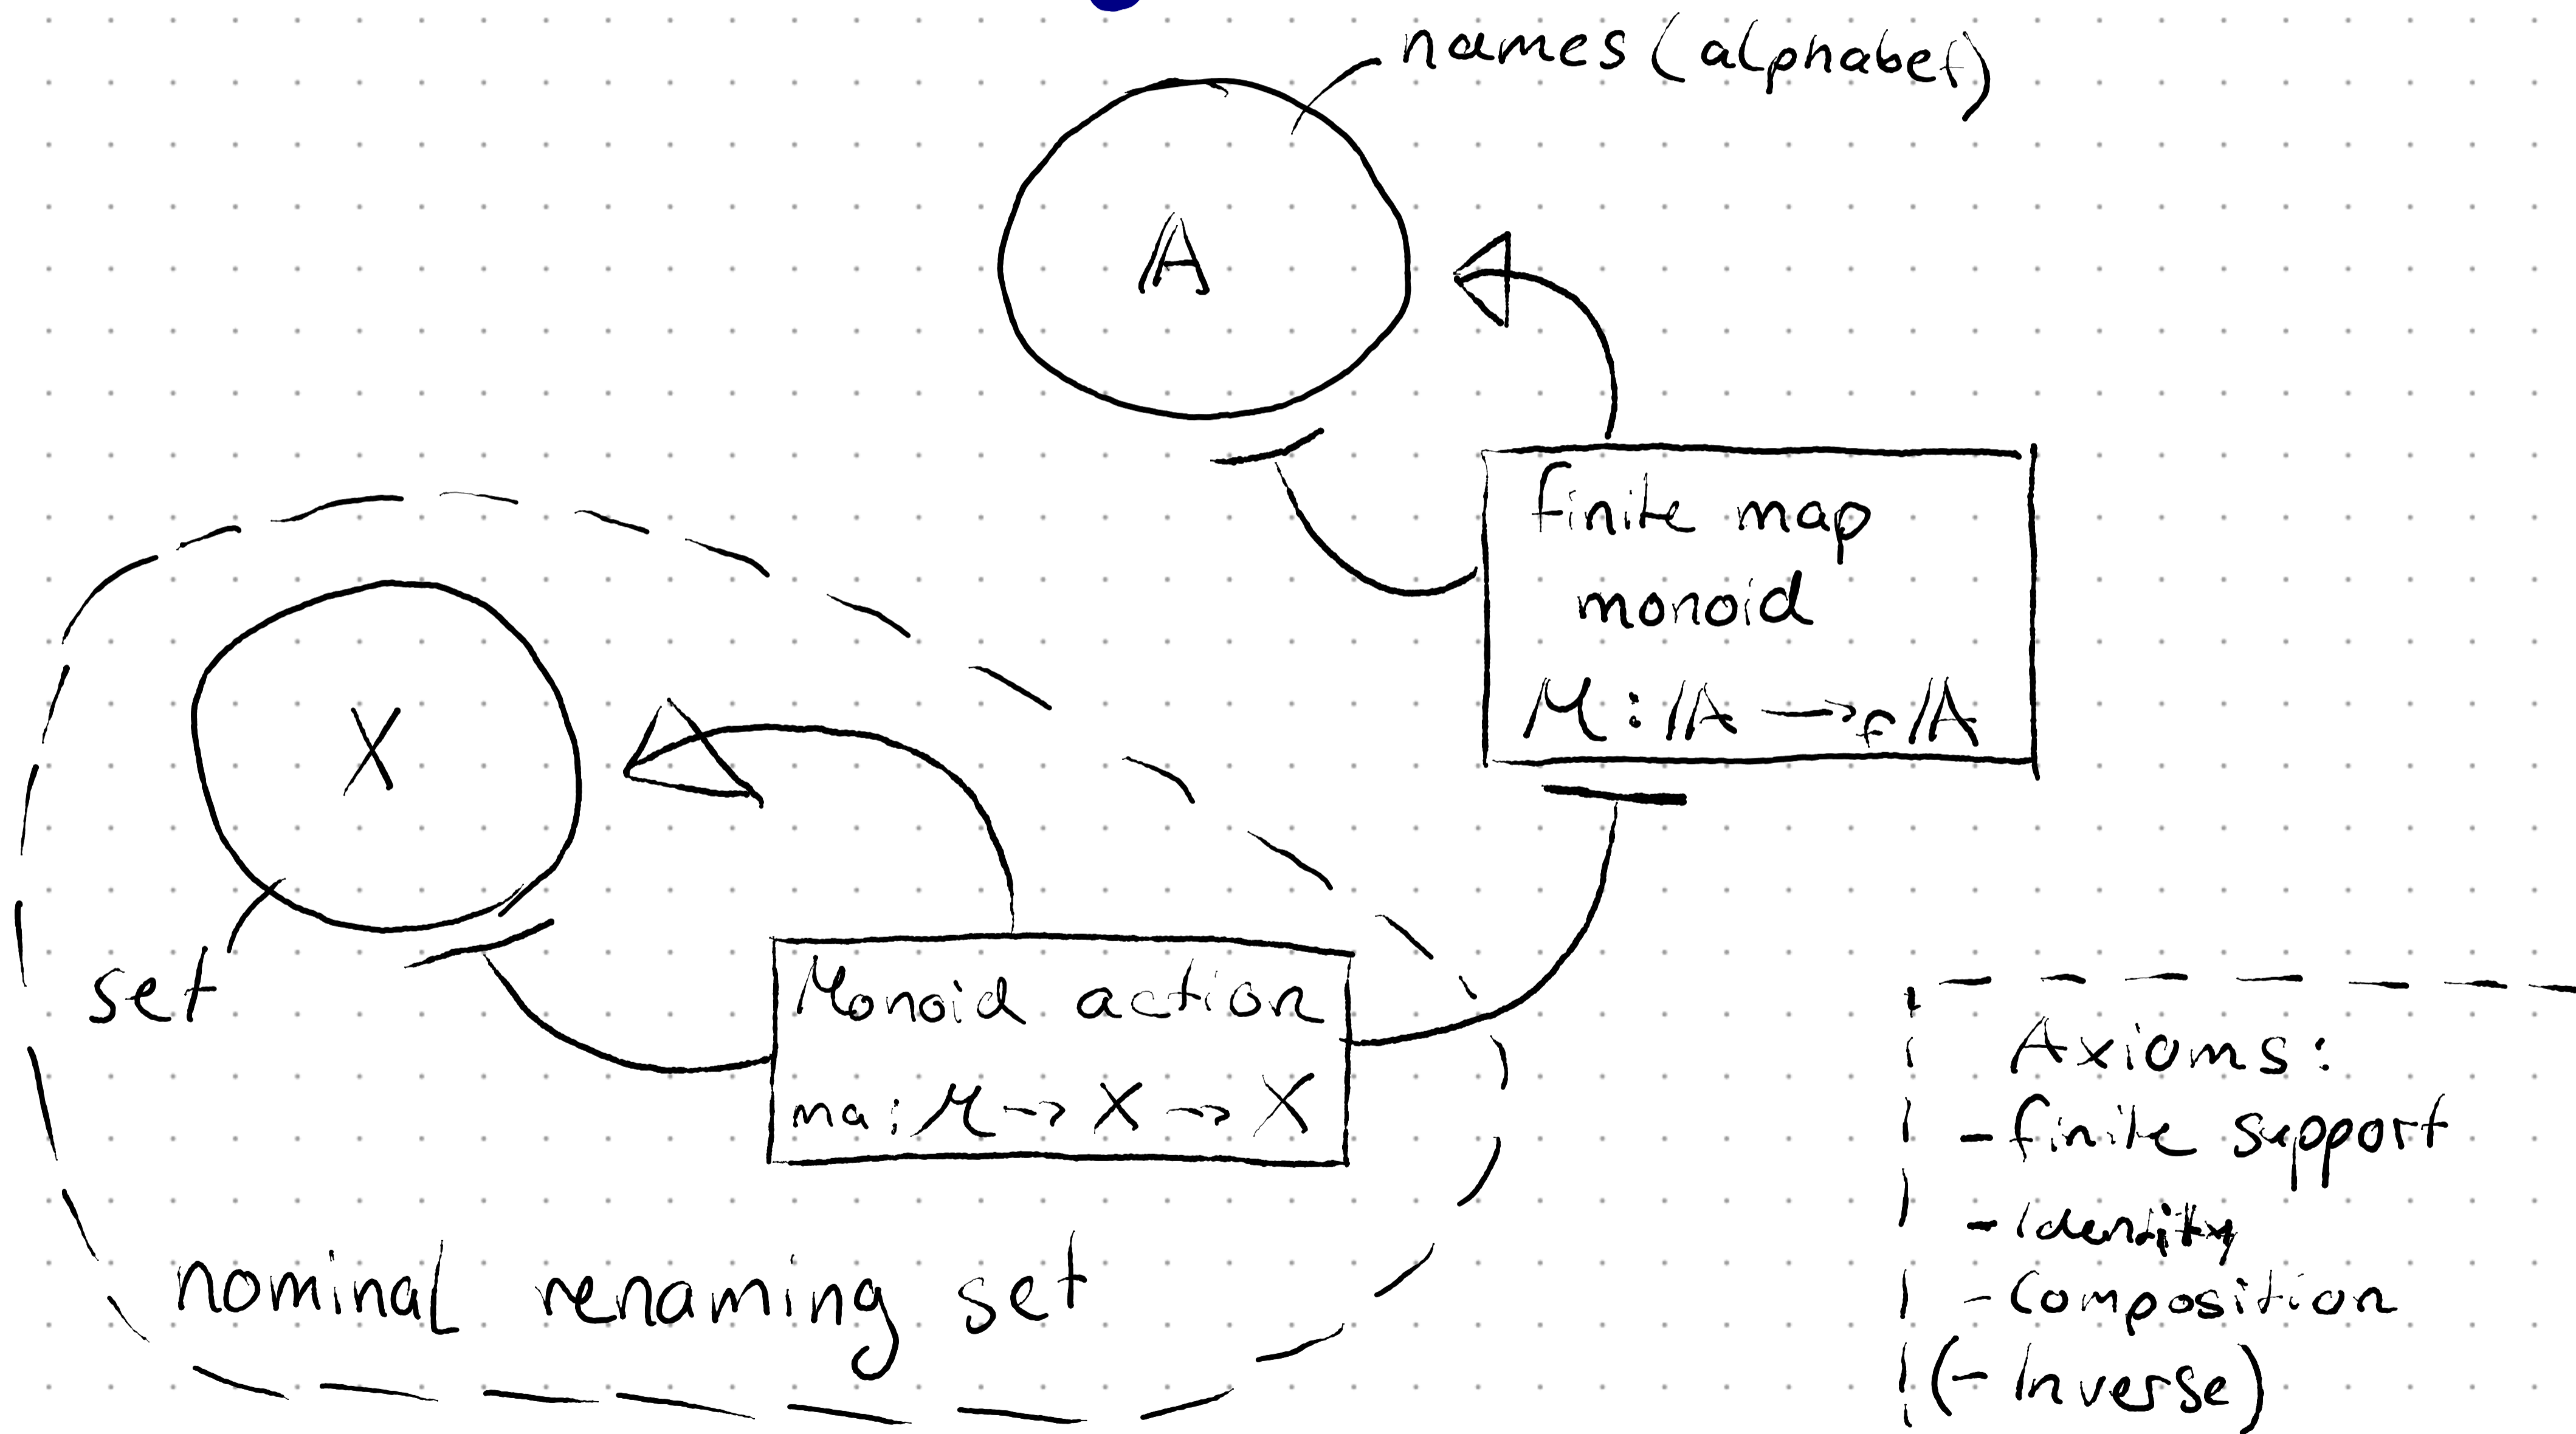 names (alphabet)
𝔸
finite map
monoid
M : 𝔸 →f 𝔸
X
set
Monoid action
ma : M → X → X
nominal renaming set
Axioms:
- finite support
- Identity
- Composition
(- Inverse)